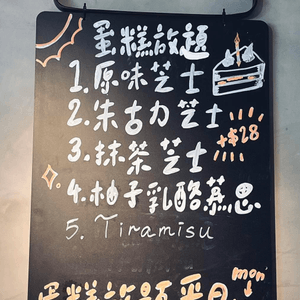 蛋糕放題
1. 原味芝士
2. 朱古力芝士
+$28
3. 抹茶芝士
4. 柚子乳酪慕思
5. Tiramisu
mon
蛋糕放題